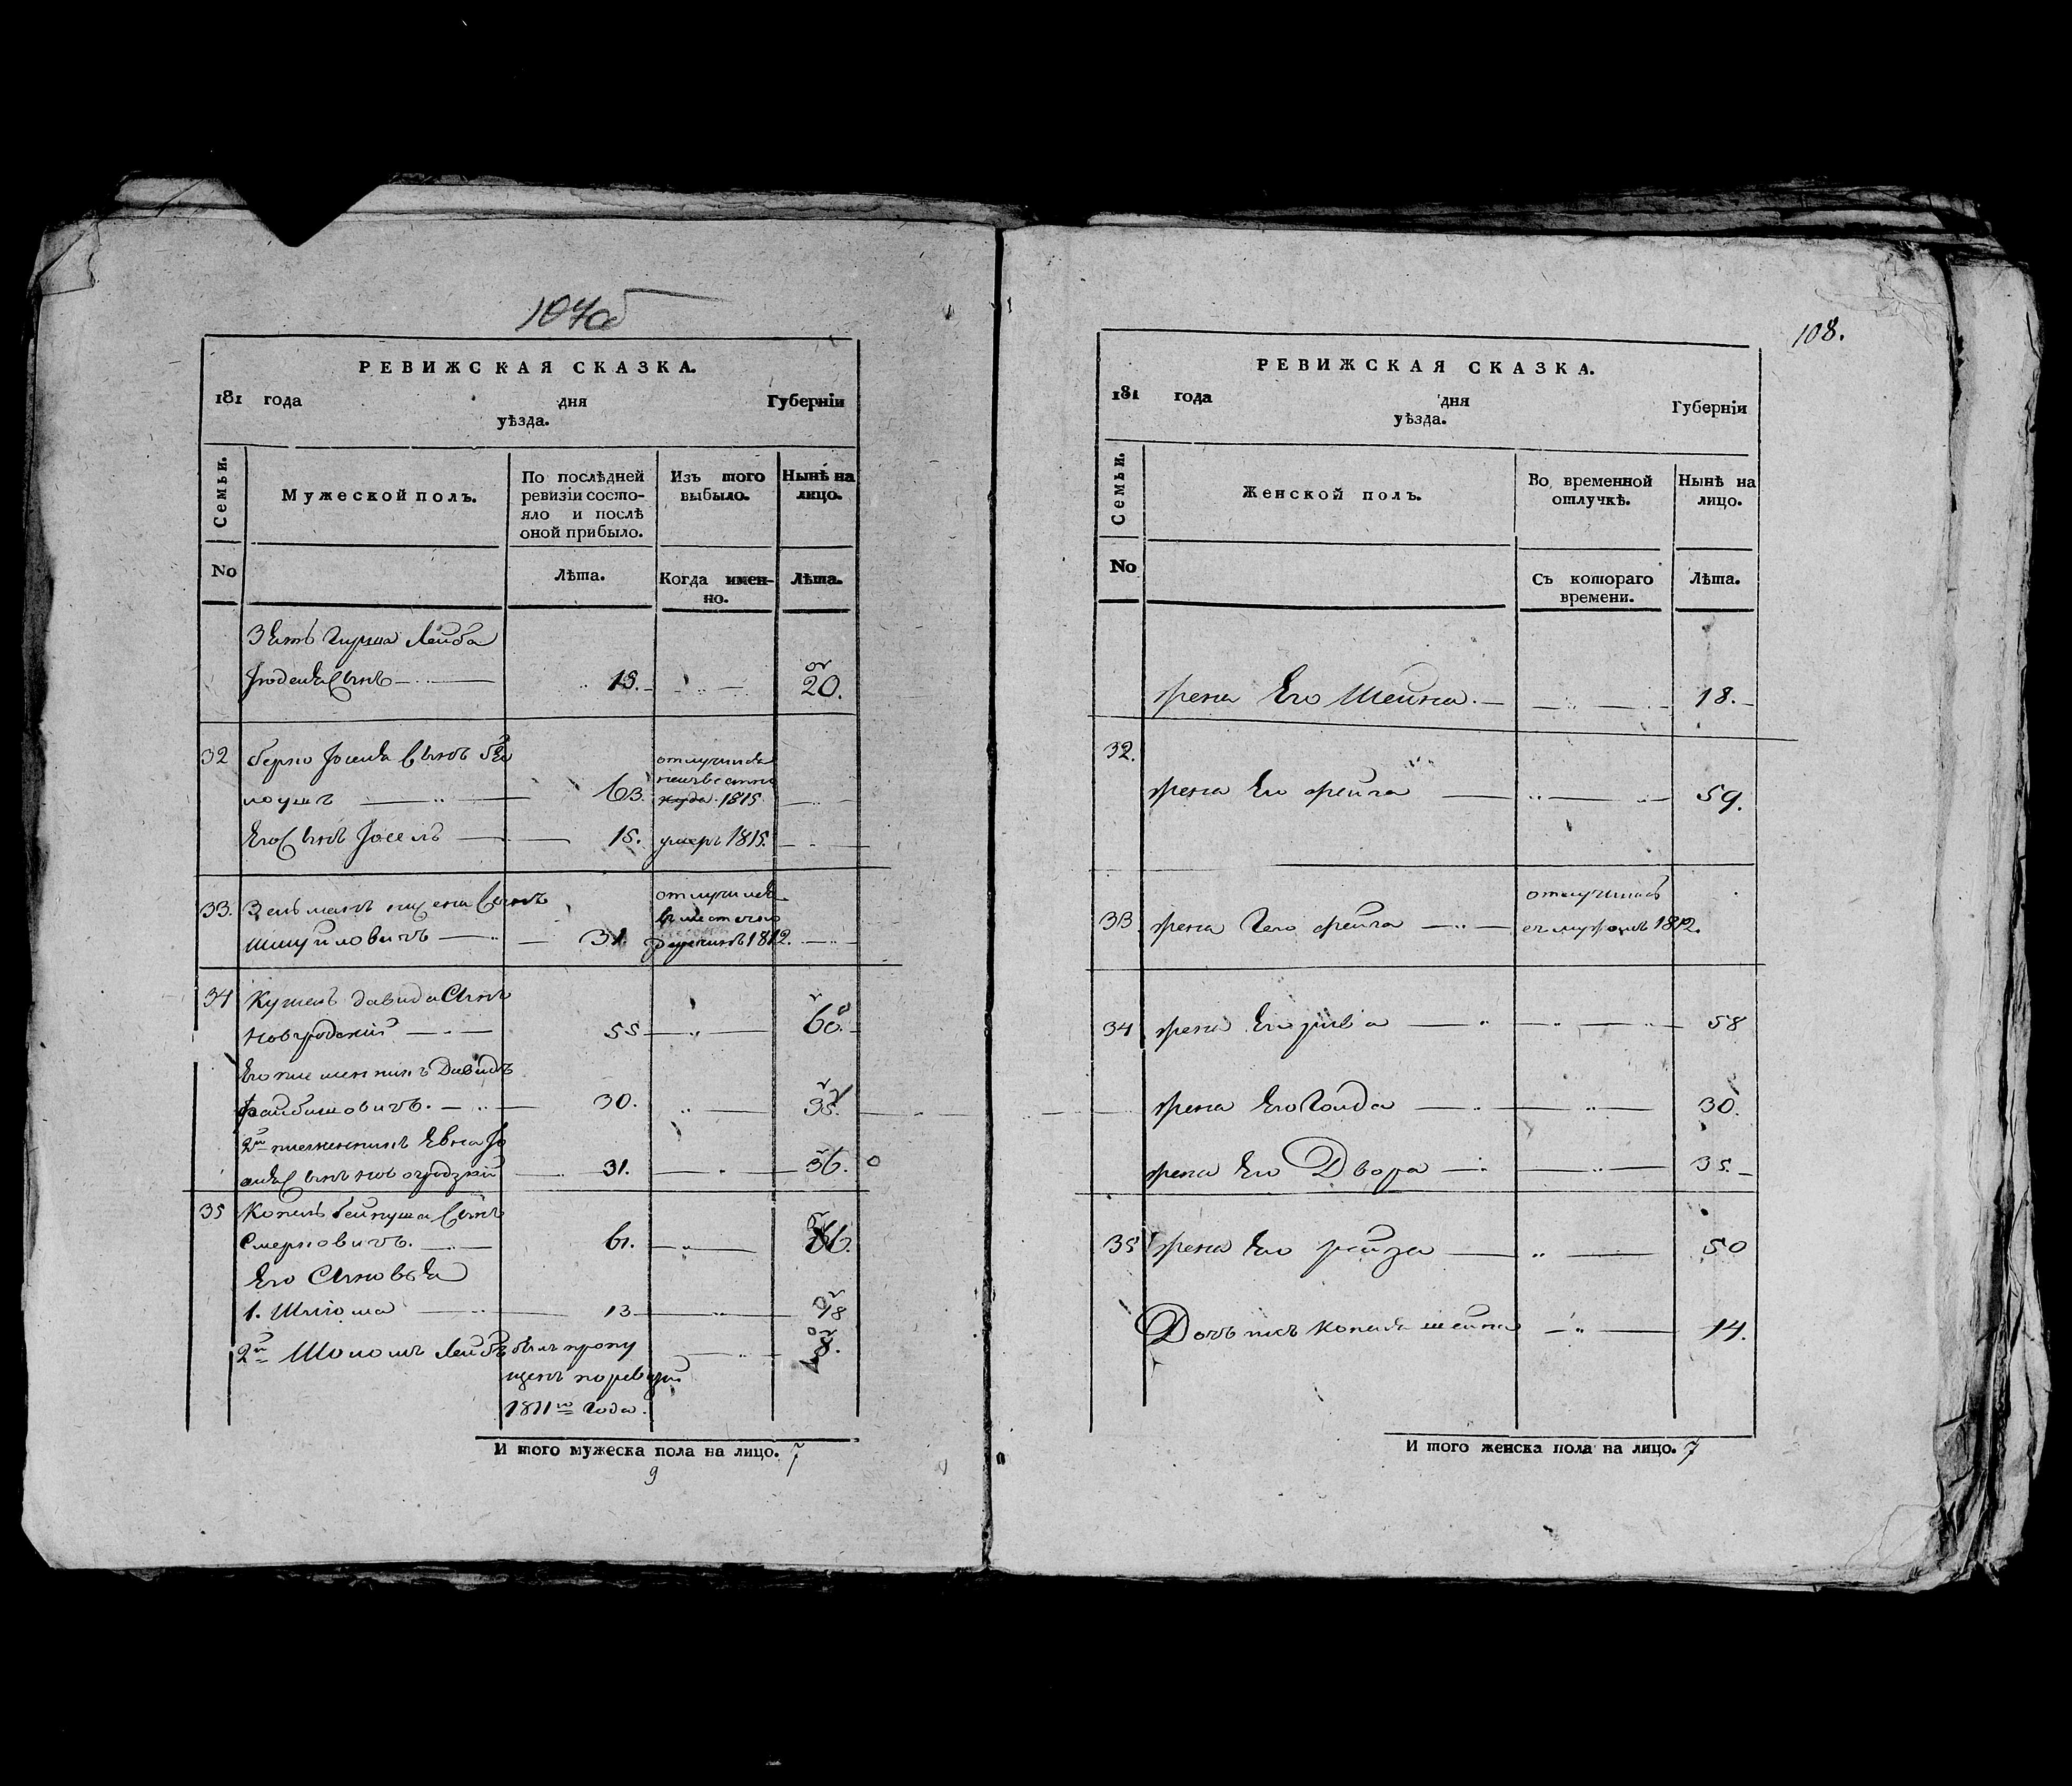 107об
РЕВИЖСКАЯ СКАЗКА.
181 года дня Губерніи
уѣзда.
Семьи. Мужеской полъ. По послѣдней ревизіи состо-яло и послѣ оной прибыло. Изъ того выбыло. Нынѣ на лицо.
No Лѣта. Когда имен-но. Лѣта.
Зять Гирша Лейба
Іоделя Сынъ 15. 20.
32 Берко Іоселя Сынъ
63. отлучился неизвестно куда 1815
Его Сынъ Іосель 15. умеръ 1815.
33. Зельманъ Сынъ отлучился
Шмуйловичъ 31. в местечко 1812.
34 Кушель Давида Сынъ
Новгродский 55 60.
Его племенникъ Давидъ
Файбишовичъ. 30. 35.
2й племенникъ Евна Іо
селя Сынъ Новогродзкий 31. 36.
35 Копель Бейнуша Сынъ
Смерковичъ. 61. 66.
Его Сыновья
1. Шлиома 13 18
2й Шоломъ Лейбъ былъ пропу 8.
щенъ по ревизии
1811го Года.
И того мужеска пола на лицо. 7
9
108.
РЕВИЖСКАЯ СКАЗКА.
181 года дня Губерніи
уѣзда.
Семьи. Женской полъ. Во временной отлучкѣ. Нынѣ на лицо.
No Съ котораго времени. Лѣта.
жена Его Шейна. 18.
32.
жена Его Фейга 59.
отлучилась
33 жена Его Фейга съ мужомъ 1812.
34 жена Его Рива 58
жена Его Голда 30.
жена Его Двора 35.
35 жена Его Рейза 50
Дочь Копеля Шейна 14.
И того женска пола на лицо. 7